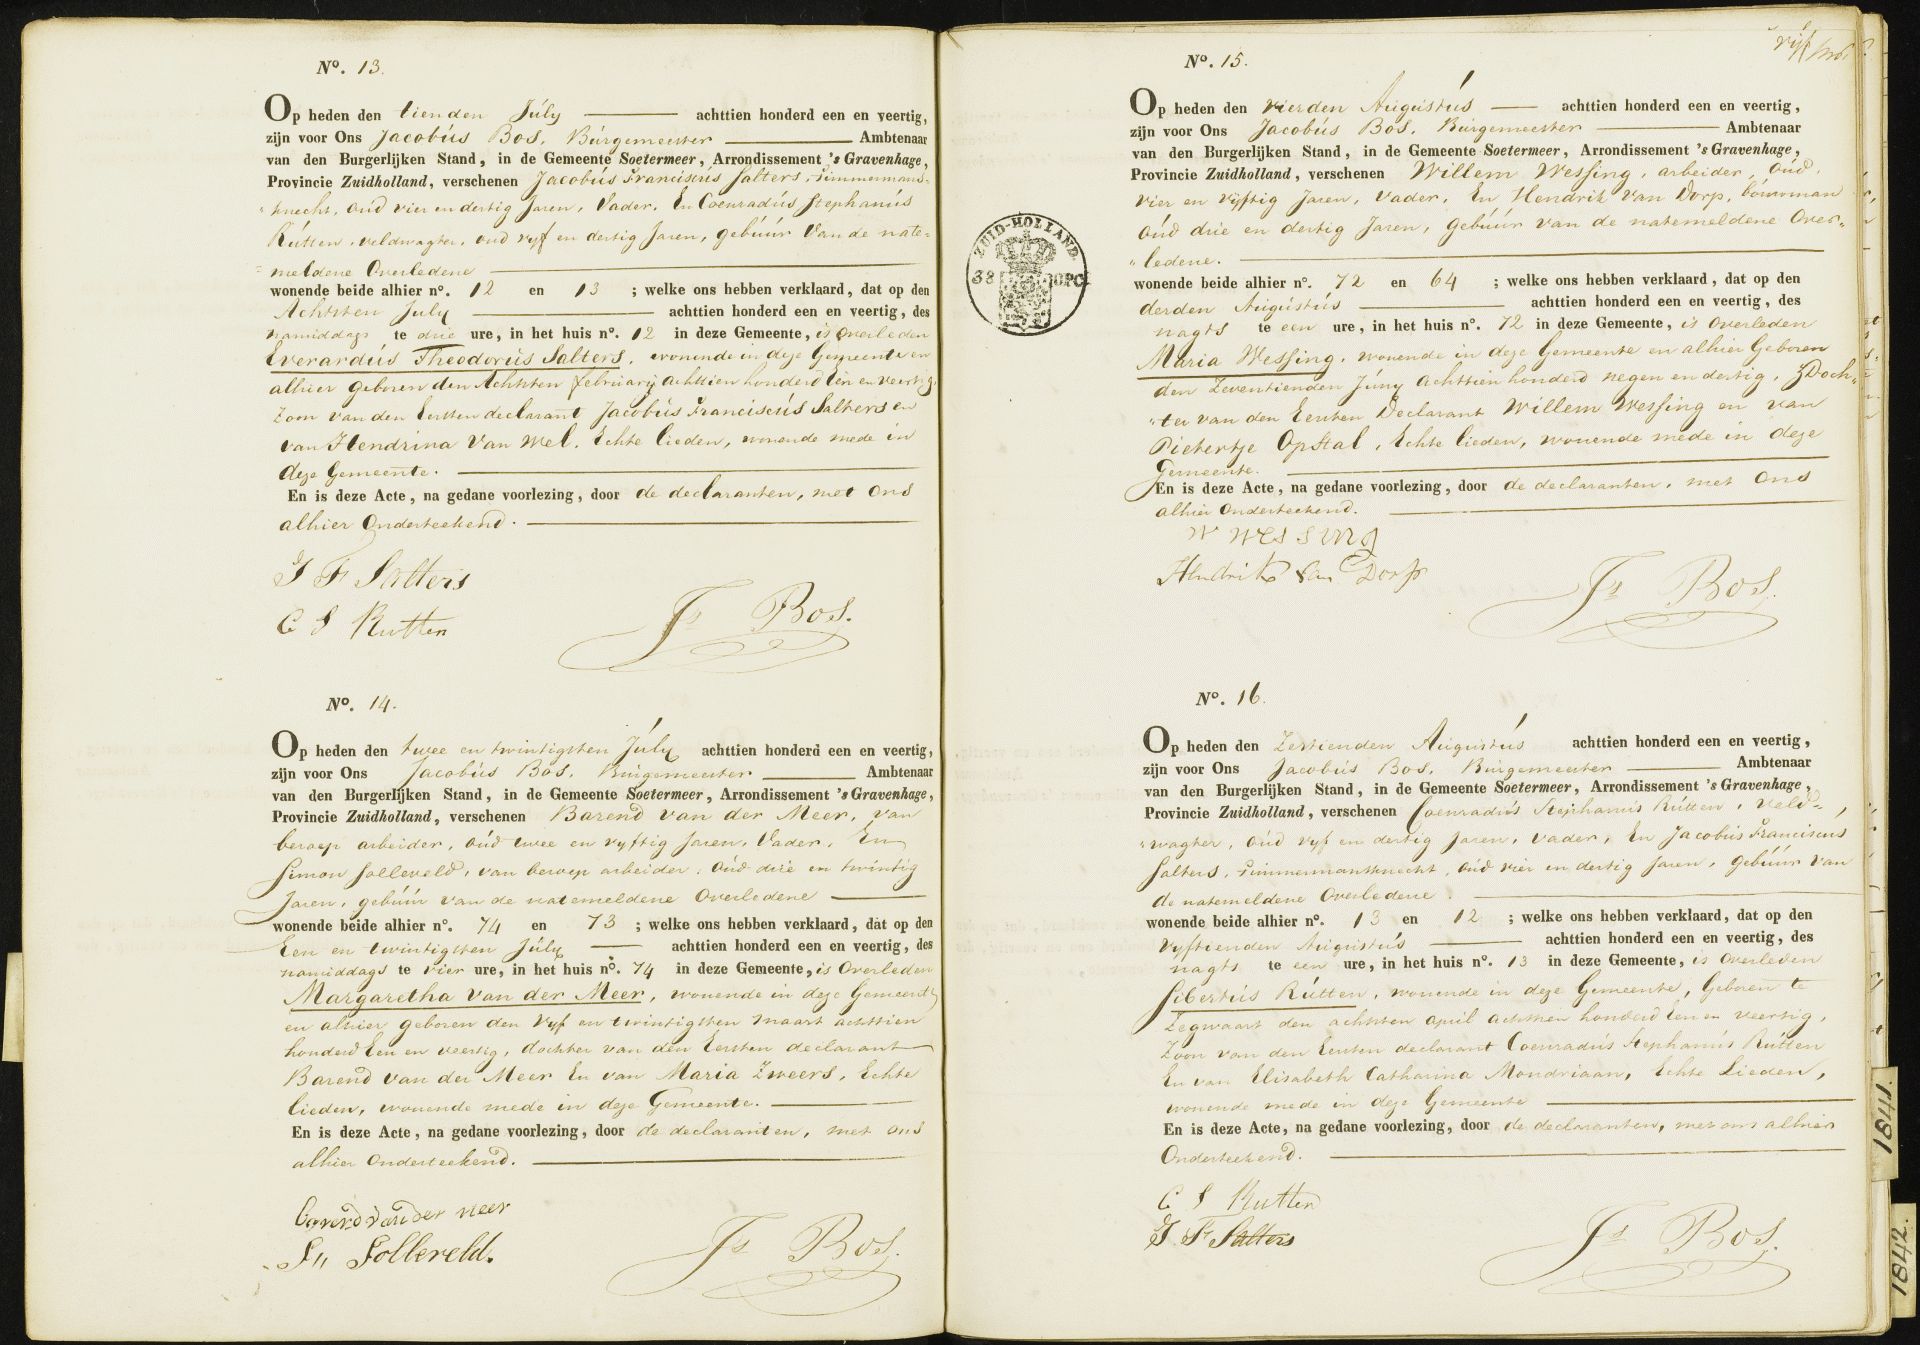 No. 13.
Op heden den tienden July achttien honderd een en veertig,
zijn voor Ons Jacobús Bos, Búrgemeester Ambtenaar
van den Burgerlijken Stand, in de Gemeente Soetermeer, Arrondissement 's Gravenhage,
Provincie Zuidholland, verschenen Jacobús Franciscus Salters, timmermans-
knecht, oud vier en dertig Jaren, Vader, En Coenradús Stephanús
Rútten, veldwagter, oud vyf en dertig Jaren, gebúúr van de nate-
meldene Overledene
wonende beide alhier no. 12 en 13 ; welke ons hebben verklaard, dat op den
Achtsten July achttien honderd een en veertig, des
namiddags te drie ure, in het huis no. 12 in deze Gemeente, is overleden
Everardús Theodorús Salters, wonende in deze Gemeente en
alhier geboren den Achtsten februarij achttien honderd Een en veertig,
Zoon van den Eersten declarant Jacobús Franciscús Salters en
van Hendrina van Wel, Echte lieden, wonende mede in
deze Gemeente.
En is deze Acte, na gedane voorlezing, door de declaranten, met Ons
alhier Onderteekend.
J F Salters
C S Rutten
Js Bos.
No. 14.
Op heden den twee en twintigsten Júly achttien honderd een en veertig,
zijn voor Ons Jacobús Bos, Búrgemeester Ambtenaar
van den Burgerlijken Stand, in de Gemeente Soetermeer, Arrondissement 's Gravenhage,
Provincie Zuidholland, verschenen Barend van der Meer, van
beroep arbeider, oúd twee en vyftig Jaren, Vader, En
Simon Solleveld, van beroep arbeider, oúd drie en twintig
Jaren, gebúúr van de natemeldene Overledene
wonende beide alhier no. 74 en 73 ; welke ons hebben verklaard, dat op den
Een en twintigsten Júly achttien honderd een en veertig, des
namiddags te vier ure, in het huis no. 74 in deze Gemeente, is Overleden
Margaretha van der Meer, wonende in deze Gemeente
en alhier geboren den vyf en twintigsten Maart achttien
honderd Een en veertig, dochter van den Eersten declarant
Barend van der Meer En van Maria Zweers, Echte
lieden, wonende mede in deze Gemeente.
En is deze Acte, na gedane voorlezing, door de declaranten, met ons
alhier Onderteekend.
van der meer
Sn Solleveld.
Js Bos.
vyf
No. 15.
Op heden den vierden Aúgústús achttien honderd een en veertig,
zijn voor Ons Jacobús Bos, Búrgemeester Ambtenaar
van den Burgerlijken Stand, in de Gemeente Soetermeer, Arrondissement 's Gravenhage,
Provincie Zuidholland, verschenen Willem Wessing, arbeider, oúd
vier en vyftig Jaren, Vader, En Hendrik van Dorp, bouwman
oúd drie en dertig Jaren, gebúúr van de natemeldene Over-
ledene.
ZUID-HOLLAND.
38 OPC
wonende beide alhier no. 72 en 64 ; welke ons hebben verklaard, dat op den
derden Aúgústús achttien honderd een en veertig, des
nagts te een ure, in het huis no. 72 in deze Gemeente, is Overleden
Maria Wessing, wonende in deze Gemeente en alhier Geboren
den Zeventienden Júny achttien honderd negen en dertig, Doch-
ter van den Eersten Declarant Willem Wessing en van
Pietertje Opstal, Echte lieden, wonende mede in deze
Gemeente.
En is deze Acte, na gedane voorlezing, door de declaranten, met Ons
alhier Onderteekend.
W Wessing
Hendrik van Dorp
Js Bos.
No. 16.
Op heden den Zestienden Aúgústús achttien honderd een en veertig,
zijn voor Ons Jacobús Bos, Búrgemeester Ambtenaar
van den Burgerlijken Stand, in de Gemeente Soetermeer, Arrondissement 's Gravenhage,
Provincie Zuidholland, verschenen Coenradús Stephanús Rútten, Veld-
wagter, oúd vyf en dertig Jaren, Vader, En Jacobús Franciscús
Salters, timmermansknecht, oúd vier en dertig Jaren, gebúúr van
de natemeldene Overledene.
wonende beide alhier no. 13 en 12 ; welke ons hebben verklaard, dat op den
vyftienden Aúgústús achttien honderd een en veertig, des
nagts te een ure, in het huis no. 13 in deze Gemeente, is Overleden
Sibertús Rútten, wonende in deze Gemeente, Geboren te
Zegwaart den achtsten april achttien honderd Een en veertig,
Zoon van den Eersten declarant Coenradús Stephanús Rútten
En van Elisabeth Catharina Mondriaan, Echte Lieden,
wonende mede in deze Gemeente
En is deze Acte, na gedane voorlezing, door de declaranten, met ons alhier
Onderteekend.
C S Rutten
J F Salters
Js Bos.
1841.
1842.